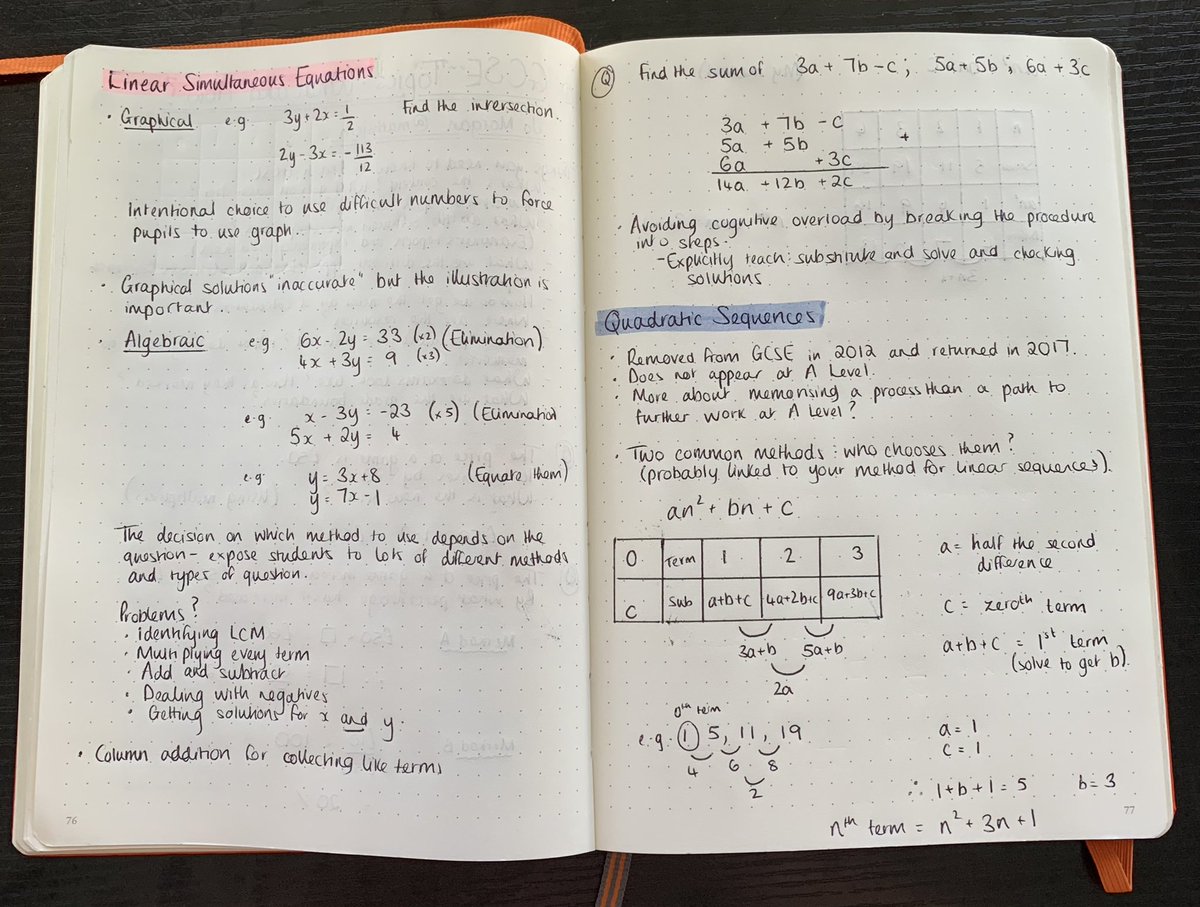 Linear Simultaneous Equations
· Graphical e.g. 3y + 2x = 1/2 Find the intersection.
2y - 3x = - 113/12
Intentional choice to use difficult numbers to force
pupils to use graph.
· Graphical solutions "inaccurate" but the illustration is
important.
· Algebraic e.g. 6x - 2y = 33 (x2) (Elimination)
4x + 3y = 9 (x3)
e.g. x - 3y = -23 (x5) (Elimination)
5x + 2y = 4
e.g. y = 3x + 8 (Equate them)
y = 7x - 1
The decision on which method to use depends on the
question - expose students to lots of different methods
and types of question.
Problems?
· identifying LCM
· Multiplying every term
· Add and subtract
· Dealing with negatives
· Getting solutions for x and y.
· Column addition for collecting like terms
76
Q Find the sum of 3a + 7b - c ; 5a + 5b ; 6a + 3c
3a + 7b - c
5a + 5b
6a + 3c
+
14a + 12b + 2c
· Avoiding cognitive overload by breaking the procedure
into steps.
- Explicitly teach: substitute and solve and checking
solutions
Quadratic Sequences
· Removed from GCSE in 2012 and returned in 2017.
· Does not appear at A Level.
· More about memorising a process than a path to
further work at A Level?
· Two common methods: who chooses them?
(probably linked to your method for linear sequences).
an² + bn + c
0 Term 1 2 3
c Sub a+b+c 4a+2b+c 9a+3b+c
3a+b 5a+b
2a
a = half the second
difference
c = zeroth term
a+b+c = 1st term
(solve to get b).
0th term
e.g. 1 5, 11, 19
4 6 8
2
a = 1
c = 1
∴ 1 + b + 1 = 5 b = 3
nth term = n² + 3n + 1
77